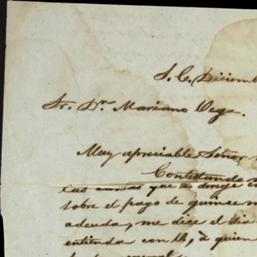 S. C. Diciemb
Sr. Dn. Mariano Vega.
Muy apreciable Señor
Contestando
que me dirije
sobre el pago de quince
adeuda, me dice el
entienda con U., à quien